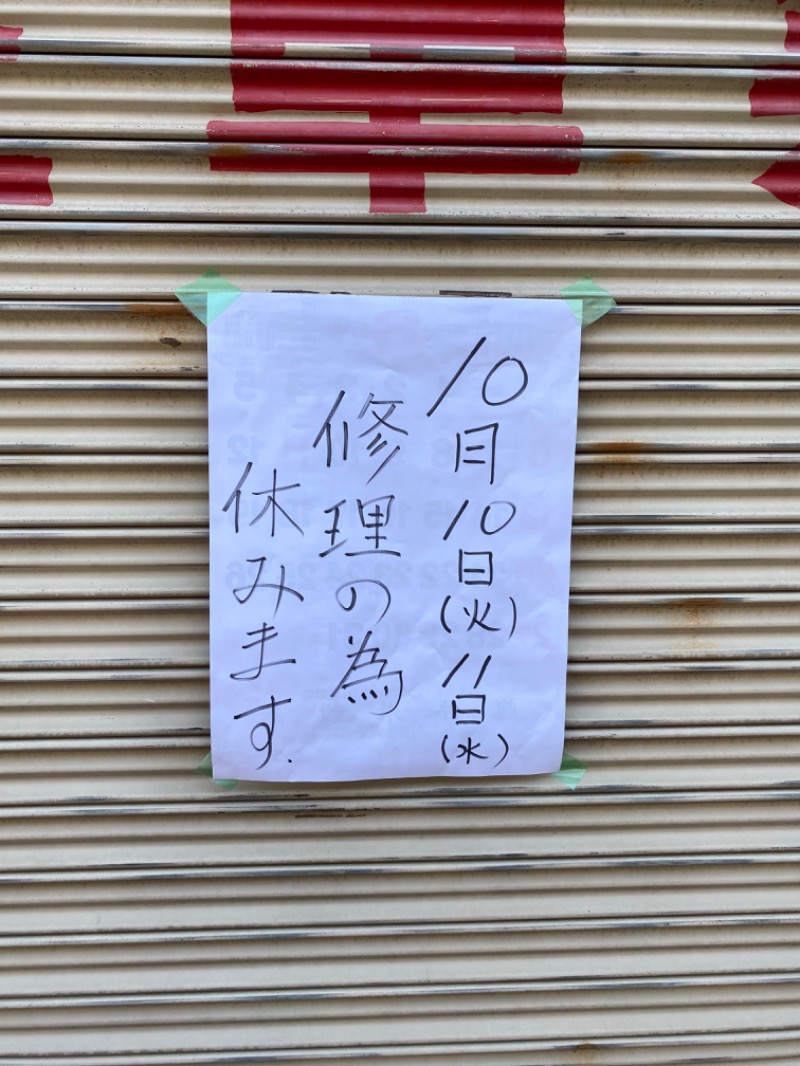 10月10日(火)11日(水)
修理の為
休みます.